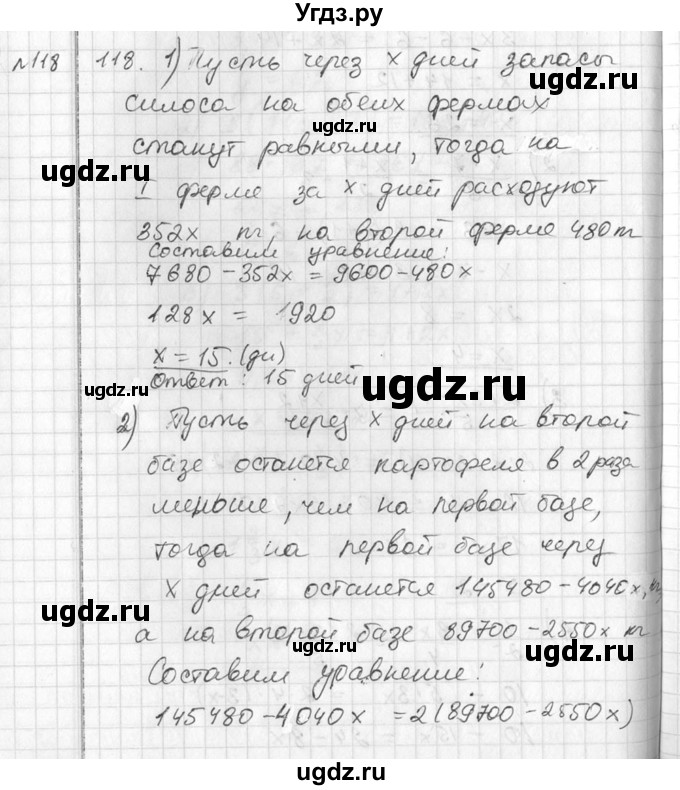 Угдз.ру
№118 118. 1) Пусть через x дней запасы
силоса на обеих фермах
станут равными, тогда на
I ферме за x дней расходуют
352x кг, на второй ферме 480т
Составим уравнение:
7680-352x = 9600-480x
128x = 1920
x = 15. (дн)
Ответ: 15 дней
2) Пусть через x дней на второй
базе останется картофеля в 2 раза
меньше, чем на первой базе,
тогда на первой базе через
x дней останется 145480-4040x, кг,
а на второй базе 89700-2550x кг
Составим уравнение:
145480-4040x = 2(89700-2550x)
ugdz.ru
ugdz.ru
ugdz.ru
ugdz.ru
ugdz.ru
ugdz.ru
ugdz.ru
ugdz.ru
ugdz.ru
ugdz.ru
ugdz.ru
ugdz.ru
ugdz.ru